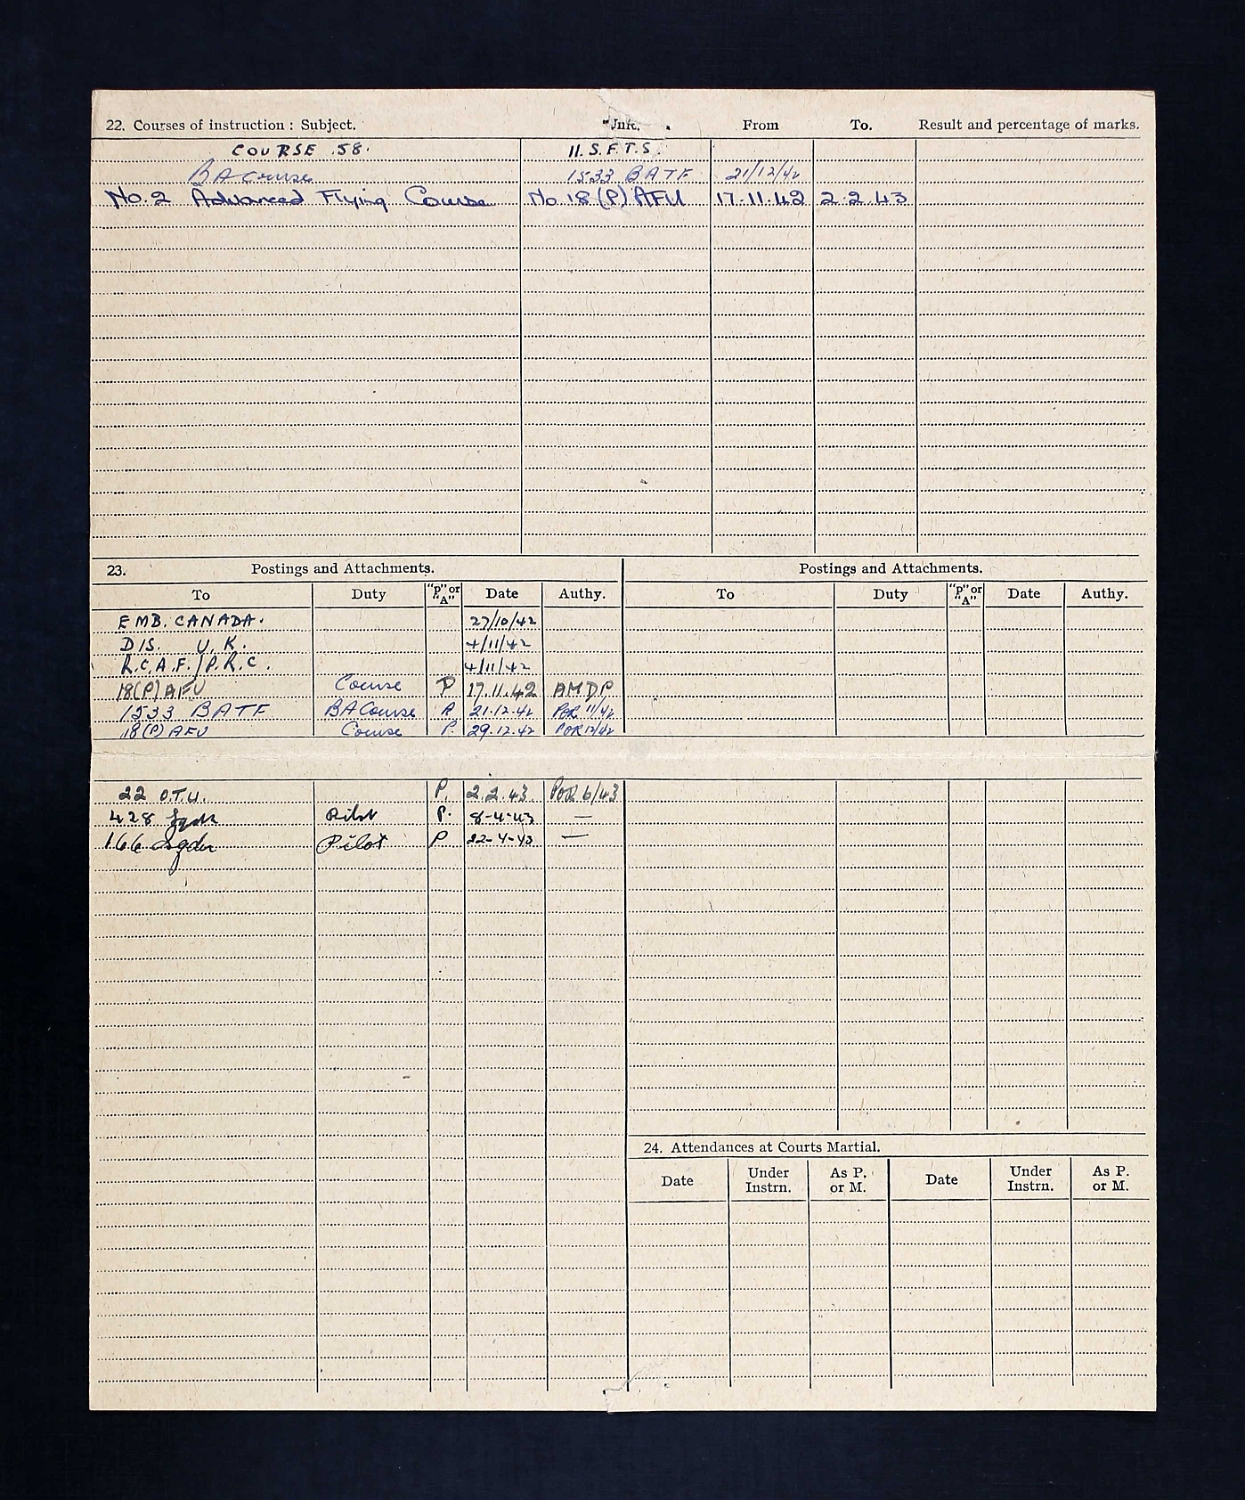 22. Courses of instruction : Subject. Unit. From To. Result and percentage of marks.
COURSE 58. 11. S.F.T.S.
BA Course 1533 BATF 21/12/42
No. 2 Advanced Flying Course No. 18 (P) AFU 17.11.42 2.2.43
23. Postings and Attachments. Postings and Attachments.
To Duty "P" or "A" Date Authy. To Duty "P" or "A" Date Authy.
EMB. CANADA. 27/10/42
DIS. U.K. 4/11/42
R.C.A.F./P.R.C. 4/11/42
18(P) AFU Course P 17.11.42 AMDP
1533 BATF BA Course A 21.12.42 POR 11/42
18(P) AFU Course P. 29.12.42 POR 12/42
22 O.T.U. P. 2.2.43. POR 6/43
428 Sqdn Pilot P. 8-4-43 —
166 Sqdn Pilot P 22-4-43 —
24. Attendances at Courts Martial.
Date Under Instrn. As P. or M. Date Under Instrn. As P. or M.